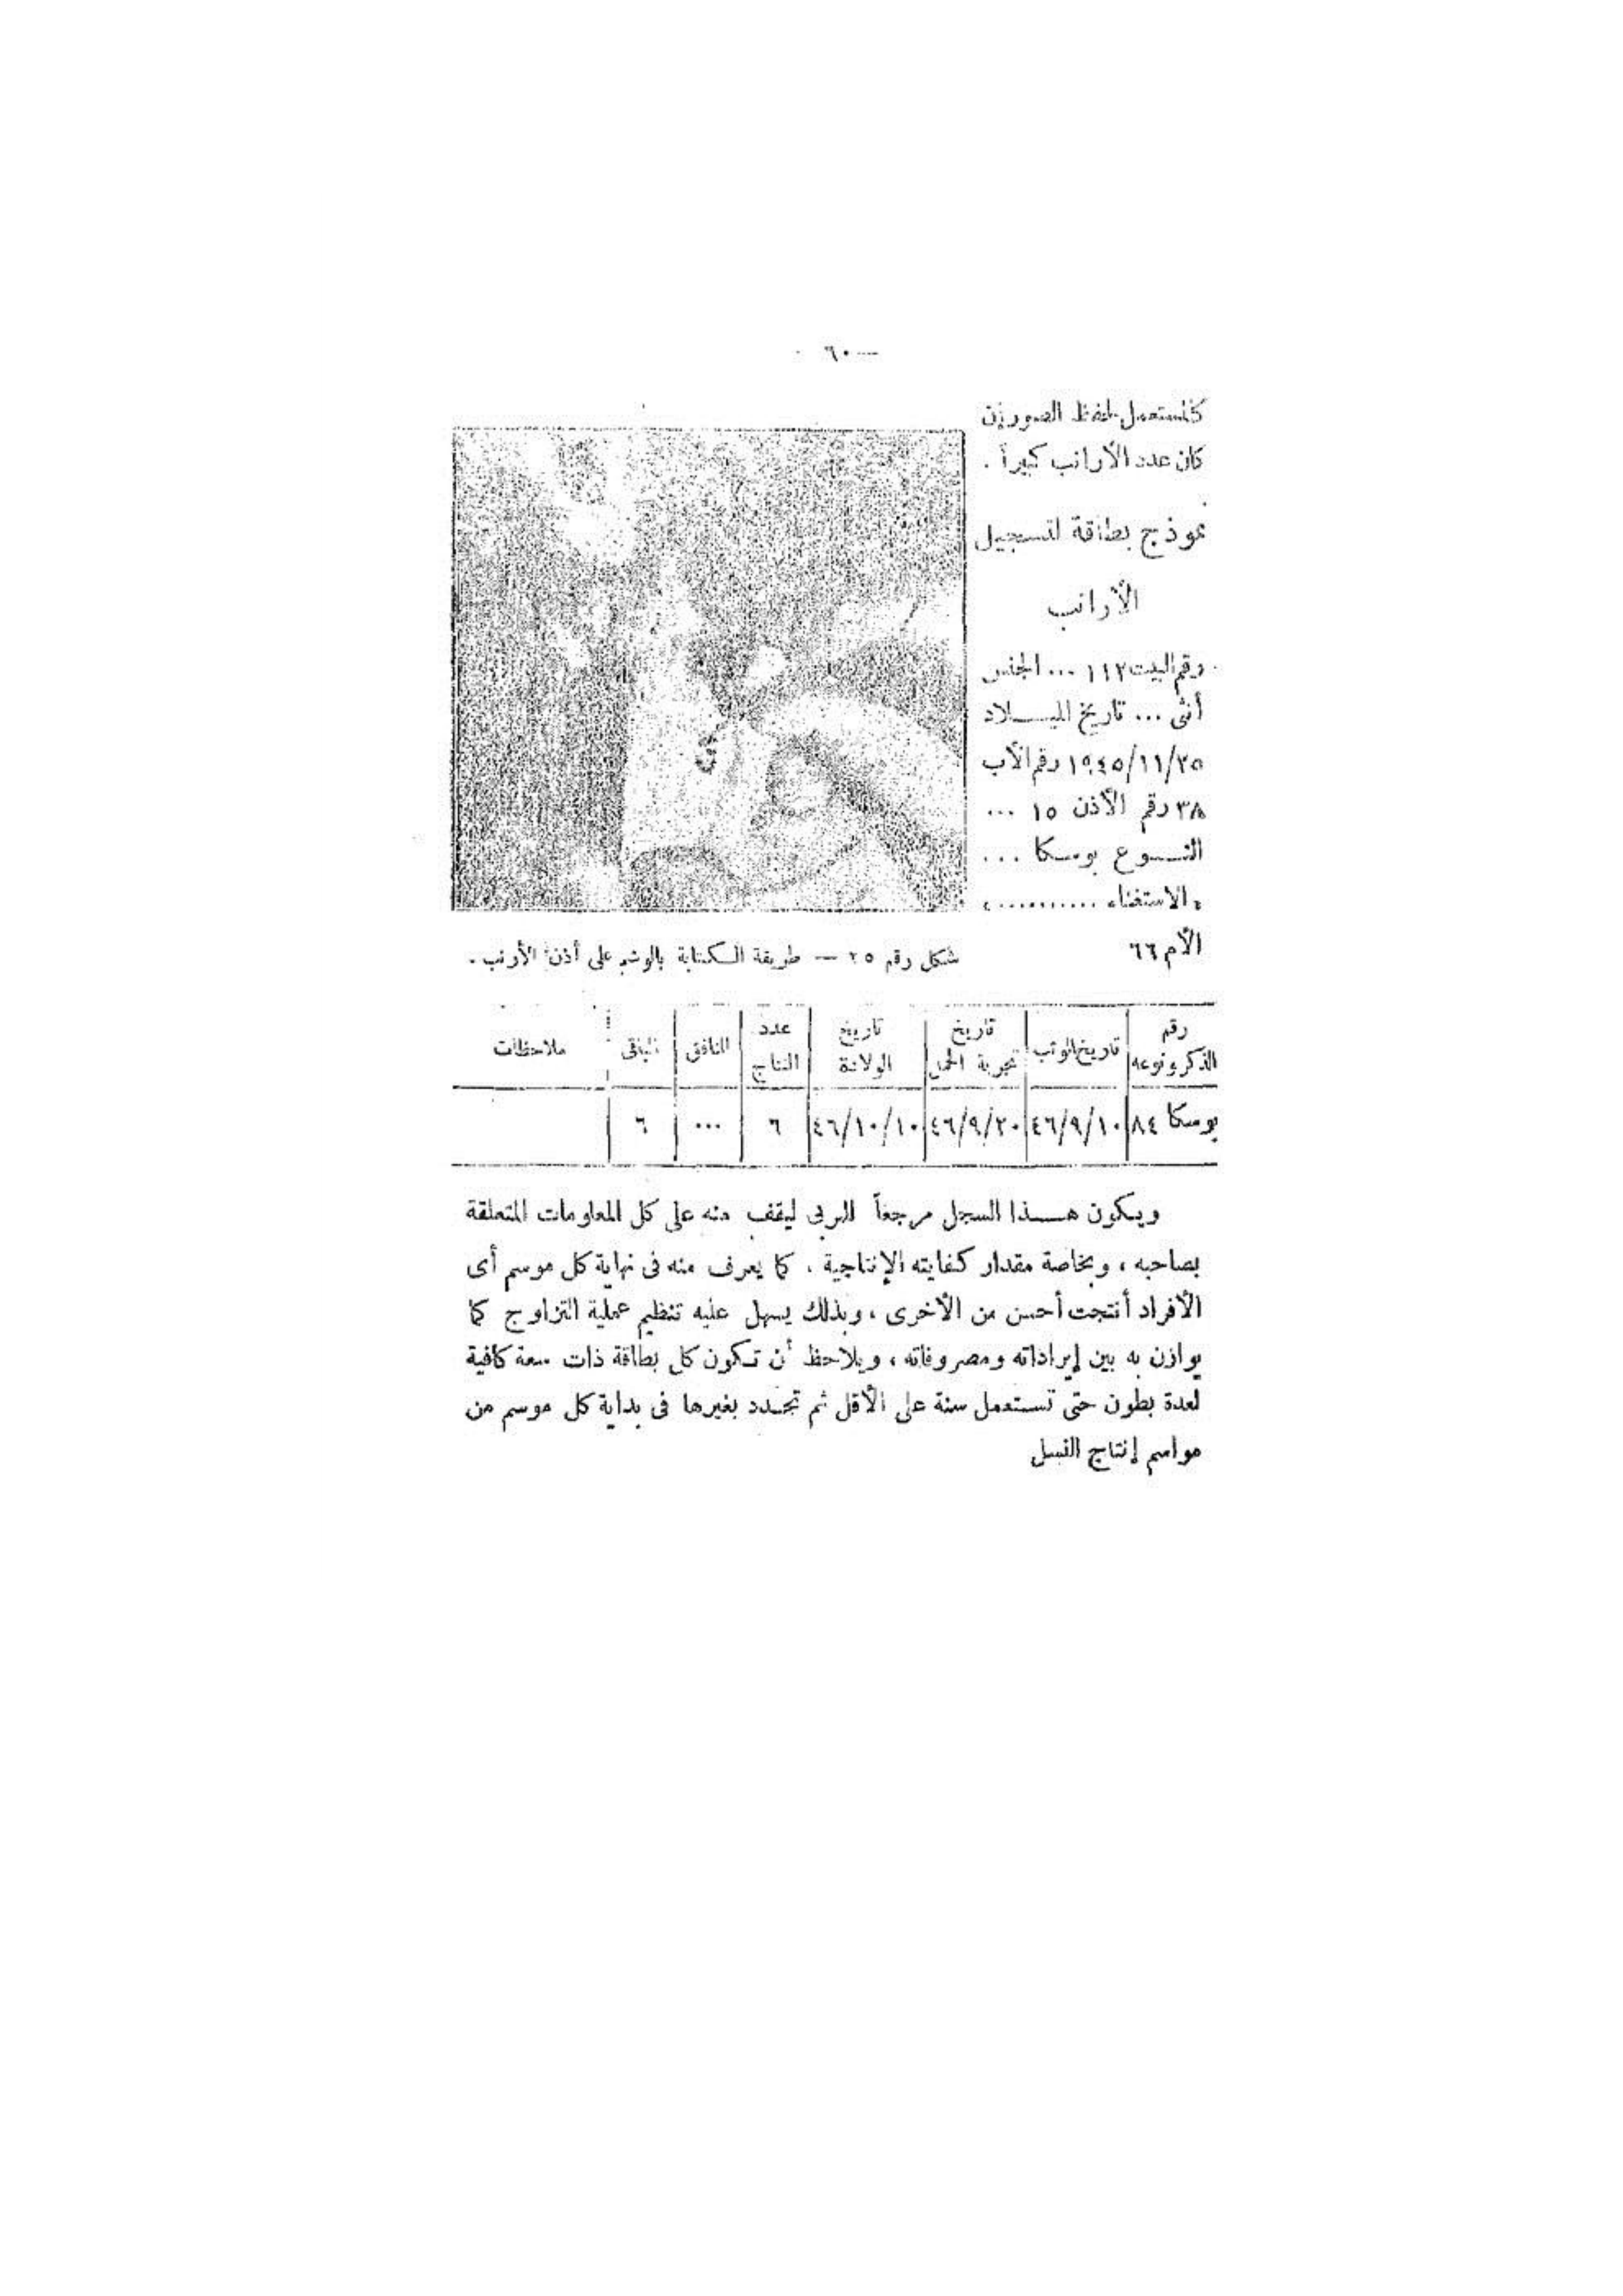 — ٦٠
كالمستعمل لحفظ الصور إن
كان عدد الأرانب كبيراً .
نموذج بطاقة لتسجيل
الأرانب
رقم البيت ١١٢ ... الجنس
أنثى ... تاريخ الميـــلاد
١٩٤٥/١١/٢٥ رقم الأب
٣٨ رقم الأذن ١٥ ...
النـــوع بوسكا ...
« الاستغناء ...........»
الأم ٦٦
شكل رقم ٢٥ — طريقة الكتابة بالوشم على أذن الأرنب .
رقم الذكر ونوعه | تاريخ الوثب | تاريخ تجربة الحمل | تاريخ الولادة | عدد النتاج | النافق | الباقى | ملاحظات
بوسكا ٨٤ | ٤٦/٩/١٠ | ٤٦/٩/٢٠ | ٤٦/١٠/١٠ | ٦ | ... | ٦
ويكون هـــذا السجل مرجعاً للمربى ليقف منه على كل المعلومات المتعلقة
بصاحبه ، وبخاصة مقدار كفايته الإنتاجية . كما يعرف منه فى نهاية كل موسم أى
الأفراد أنتجت أحسن من الأخرى ، وبذلك يسهل عليه تنظيم عملية التزاوج كما
يوازن به بين إيراداته ومصروفاته ، ويلاحظ أن تكون كل بطاقة ذات سعة كافية
لعدة بطون حتى تستعمل سنة على الأقل ثم تجدد بغيرها فى بداية كل موسم من
مواسم إنتاج النسل